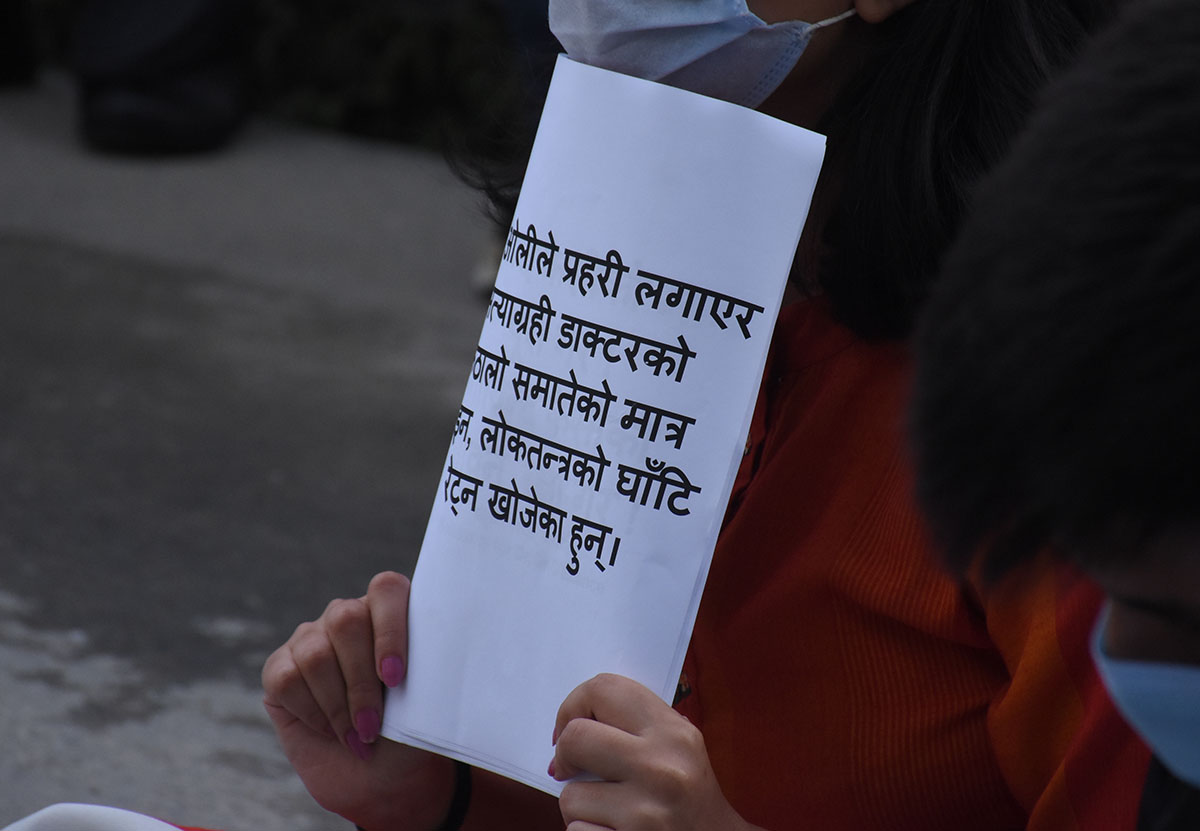 ओलीले प्रहरी लगाएर
सत्याग्रही डाक्टरको
समातेको मात्र
लोकतन्त्रको घाँटि
रेट्न खोजेका हुन्।